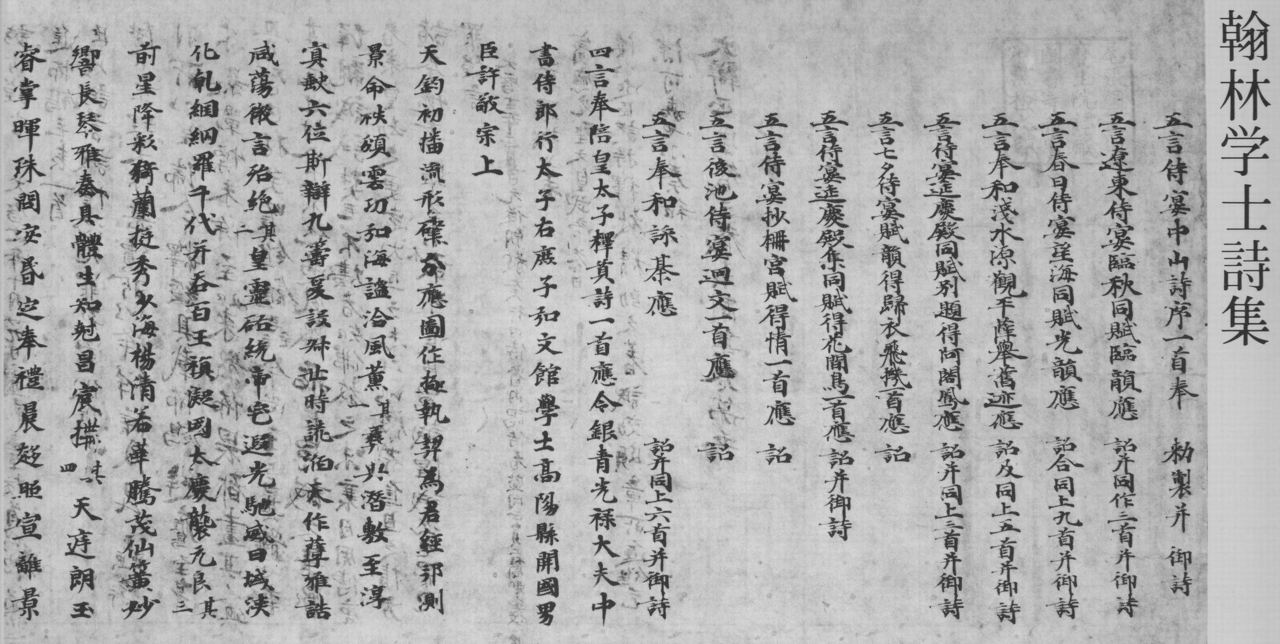 翰林学士詩集
五言侍宴中山詩序一首奉 勑製并 御詩
五言遼東侍宴臨秋同賦臨韻應 詔并同作三首并御詩
五言春日侍宴望海同賦光韻應 詔合同上九首并御詩
五言奉和淺水源觀平薛舉舊迹應 詔及同上五首并御詩
五言侍宴延慶殿同賦別題得阿閣鳳應 詔并同上三首并御詩
五言七夕侍宴賦韻得歸衣飛機一首應 詔
五言侍宴延慶殿集同賦得花間鳥一首應 詔并御詩
五言侍宴抄柵宮賦得情一首應 詔
五言後池侍宴迴文一首應 詔
五言奉和詠棊應 詔并同上六首并御詩
四言奉陪皇太子釋奠詩一首應令銀青光祿大夫中
書侍郎行太子右庶子知文館學士高陽縣開國男
臣許敬宗上
天鈞初播流形爰分應圖作極執契為君經邦測
景命秩頒雲功和海謐洽風薰其一 彝訓潛敷至淳
冥缺六位斯辯九疇爰設時訛洎奉作尊雅誥
咸蕩微言殆絕其二 皇靈祐統帝宅遐光馳威日域浹
化乹綱網羅千代并吞百王禎凝岡太慶襲元良其三
前星降彩猗蘭挺秀少海楊清若華騰茂仙簧妙
響長琴雅奏具體生知克昌宸構其四 天庭朗玉
睿掌暉珠問安昏定奉禮晨趍照宣離景